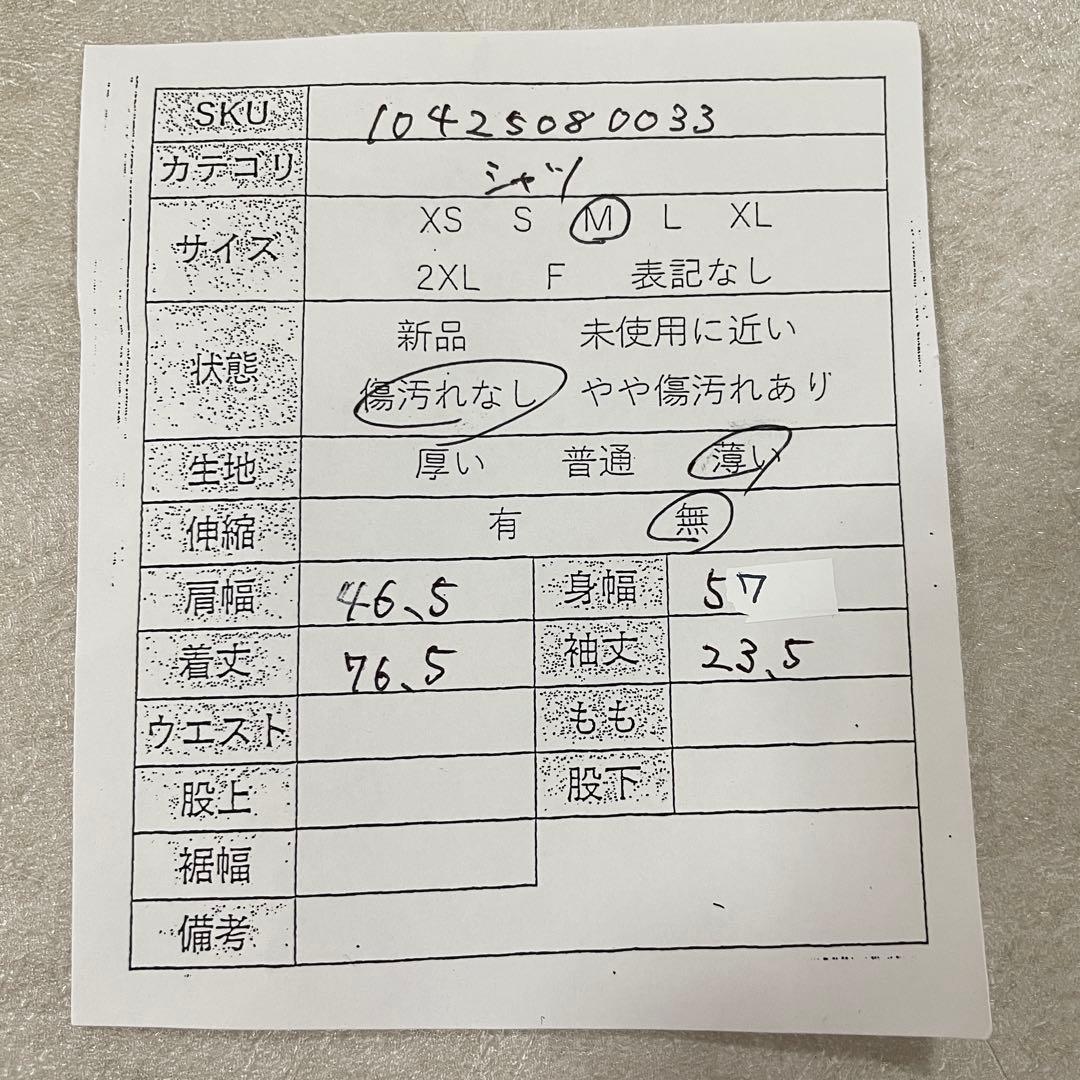 SKU 10425080033
カテゴリ シャツ
サイズ XS S M L XL
2XL F 表記なし
状態 新品 未使用に近い
傷汚れなし やや傷汚れあり
生地 厚い 普通 薄い
伸縮 有 無
肩幅 46.5 身幅 57
着丈 76.5 袖丈 23.5
ウエスト もも
股上 股下
裾幅
備考